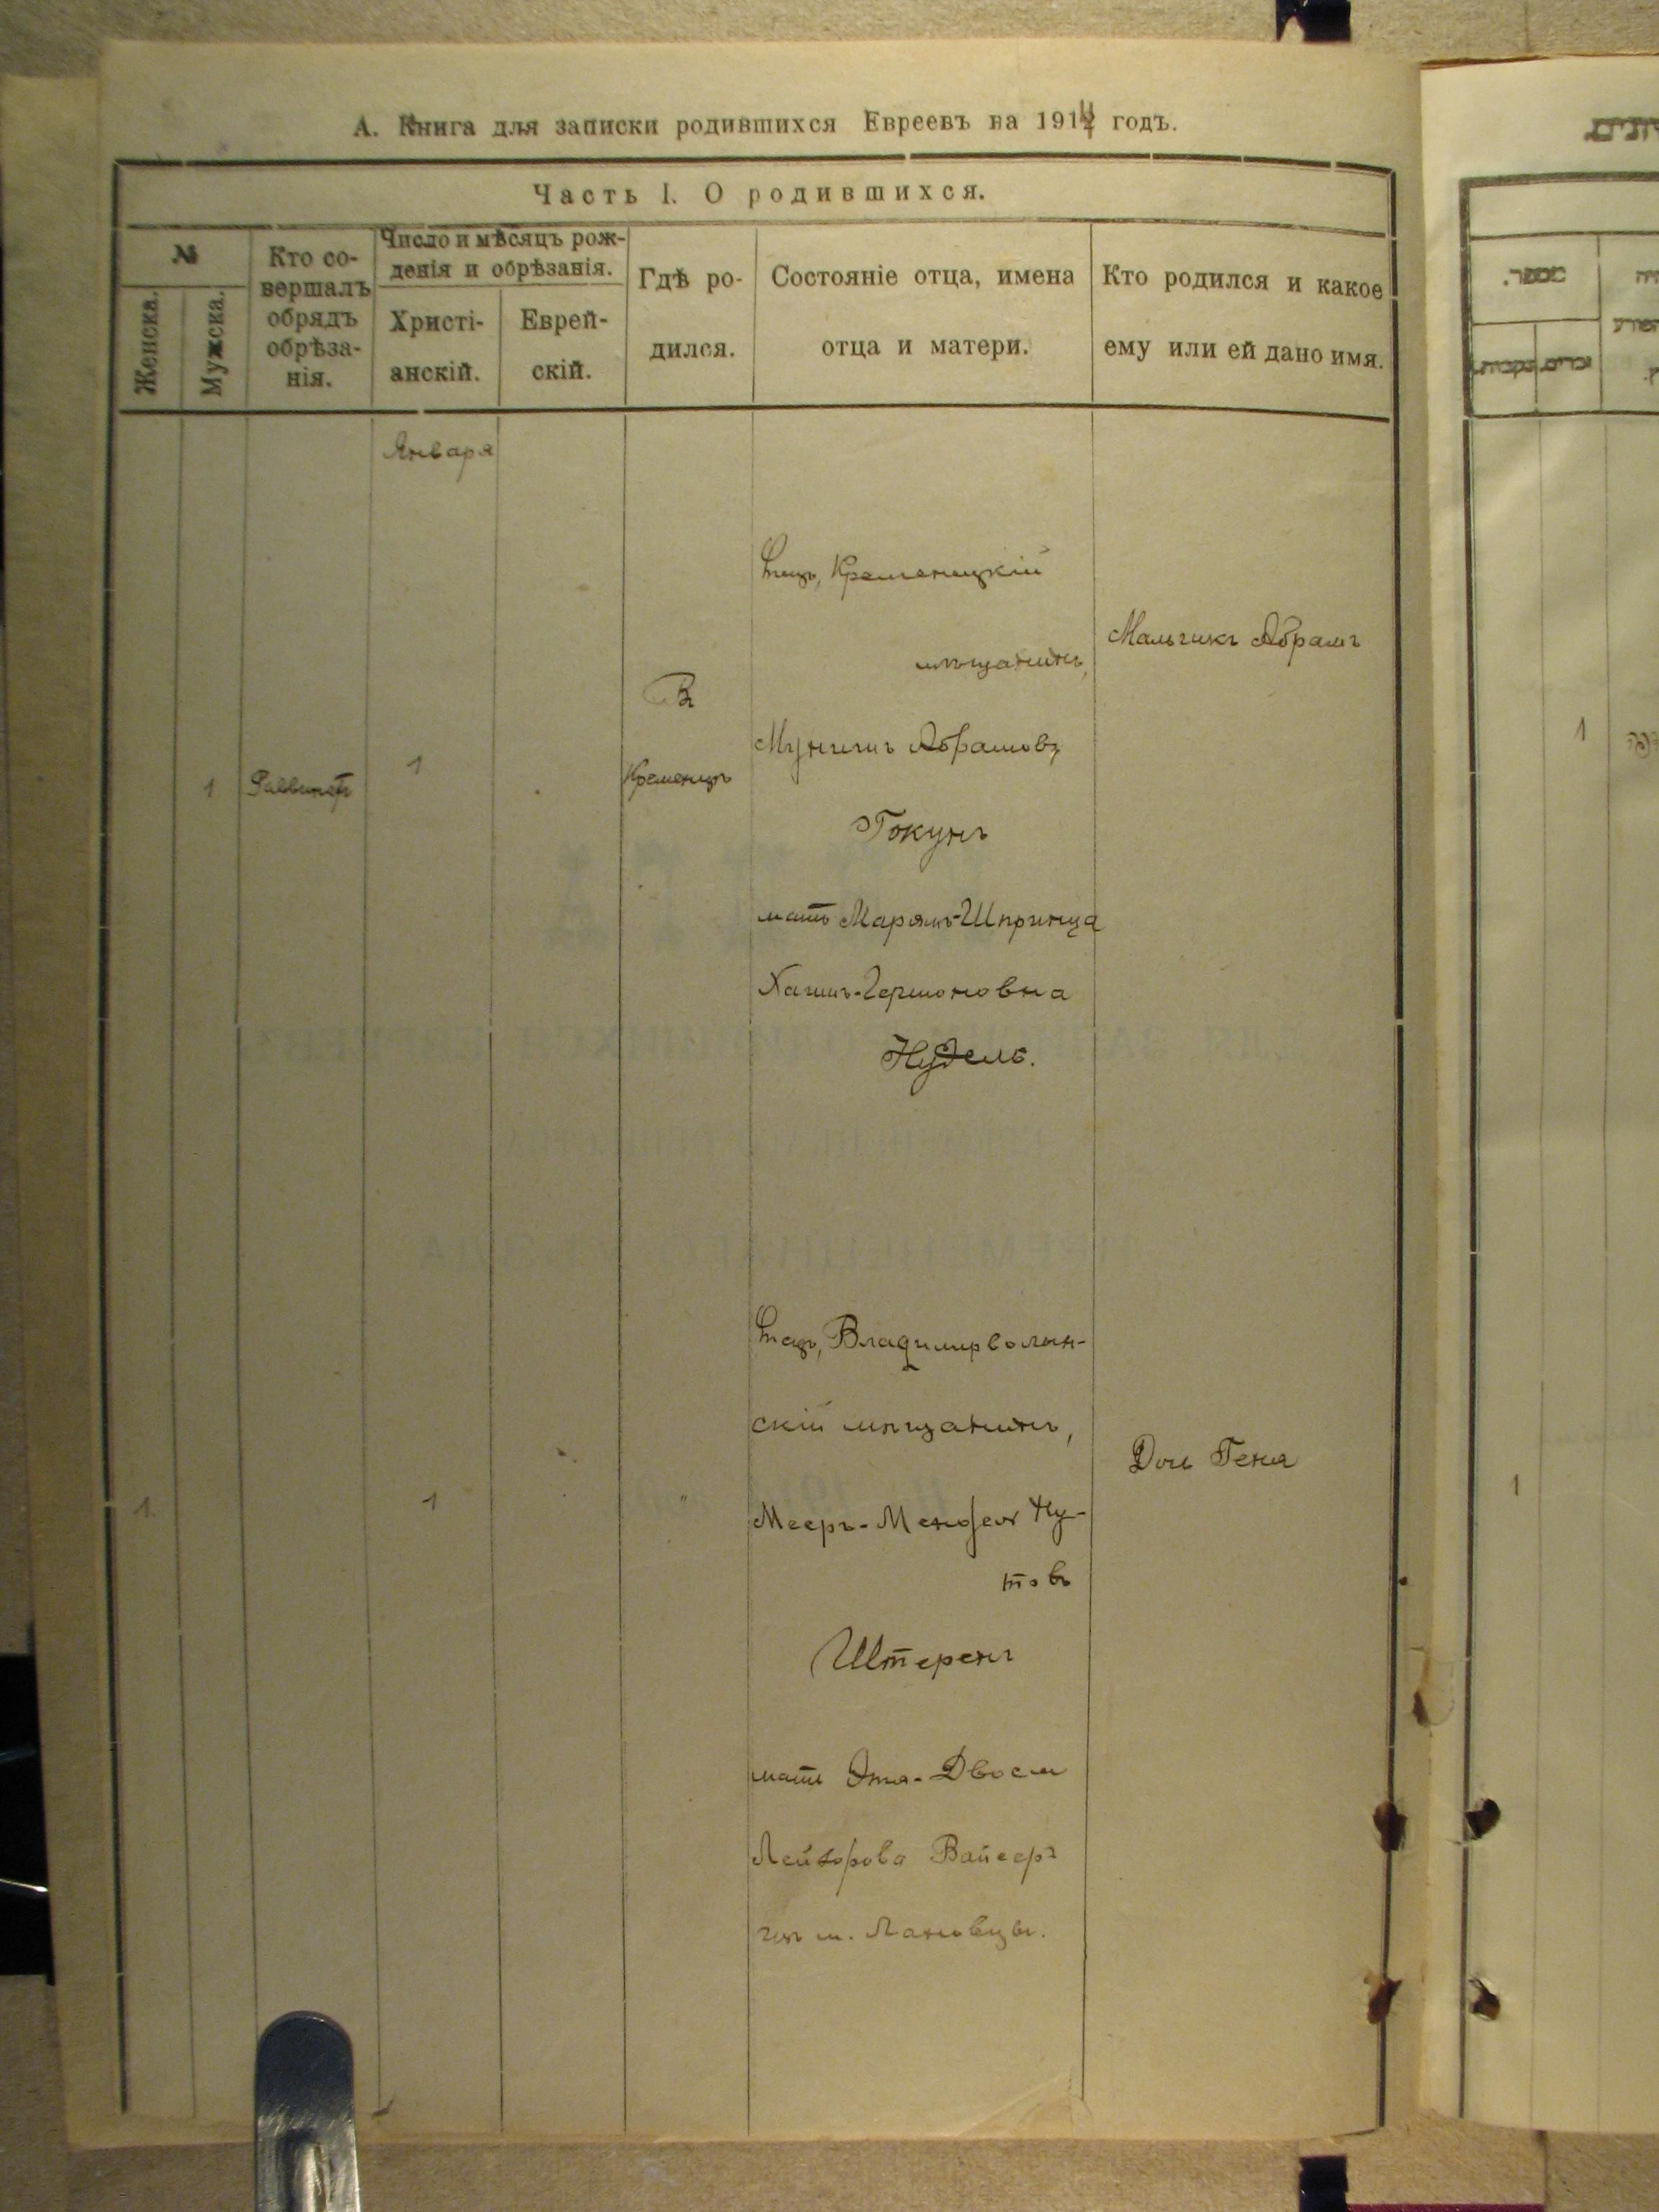 А. Книга для записки родившихся Евреевъ на 1914 годъ.
Часть I. О родившихся.
№
Женска.
Мужска.
Кто со-
вершалъ
обрядъ
обрѣза-
нія.
Число и мѣсяцъ рож-
денія и обрѣзанія.
Христі-
анскій.
Еврей-
скій.
Гдѣ ро-
дился.
Состояніе отца, имена
отца и матери.
Кто родился и какое
ему или ей дано имя.
Января
1
1
В
Кременцѣ
Отецъ, Кременецкій
мѣщанинъ,
Абрамовъ
Токунъ
мать Марямъ-Шпринца
Гершоновна
Нудель.
Мальчикъ Абрамъ
1
1
"
Отецъ, Владимирволын-
скій мѣщанинъ,
Мееръ- Ну-
товъ
Штеренъ
мать Двося
Лейзорова Вайсеръ
м. Лановцы.
Дочь Геня
מספר.
זכרים
נקבות
1
1